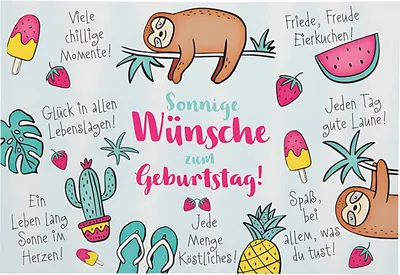 Viele
chillige
Momente!
Friede, Freude
Eierkuchen!
Glück in allen
Lebenslagen!
Sonnige
Wünsche
zum
Geburtstag!
Jeden Tag
gute Laune!
Ein
Leben lang
Sonne im
Herzen!
Jede
Menge
Köstliches!
Spaß,
bei
allem, was
du tust!